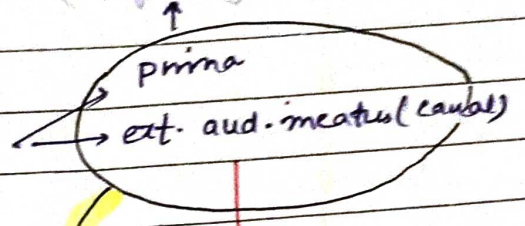 pinna
ext. aud. meatus (canal)